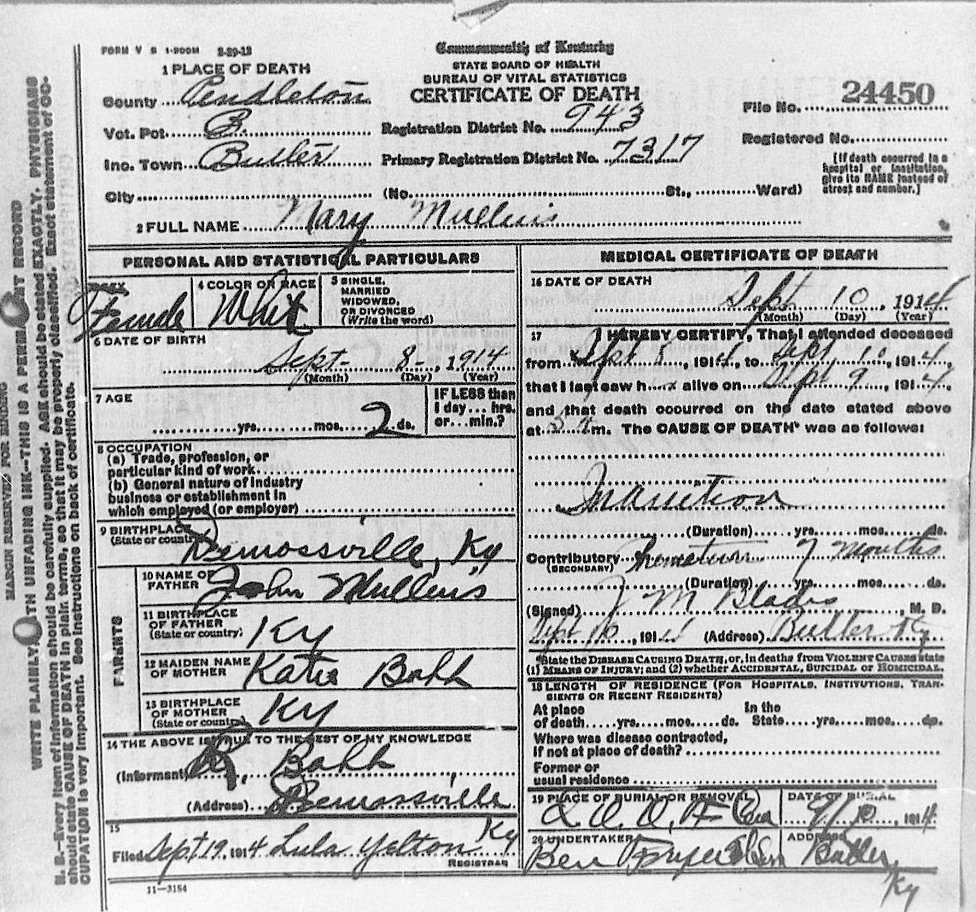 FORM V S 1-200M 2-20-13
Commonwealth of Kentucky
STATE BOARD OF HEALTH
BUREAU OF VITAL STATISTICS
CERTIFICATE OF DEATH
1 PLACE OF DEATH
County Pendleton
Vot. Pct. B.
Inc. Town Butler
City
Registration District No. 943
Primary Registration District No. 7317
(No. St., Ward)
File No. 24450
Registered No.
[If death occurred in a
hospital or institution,
give its NAME instead of
street and number.]
2 FULL NAME Mary Mullins
PERSONAL AND STATISTICAL PARTICULARS
3 SEX
Female
4 COLOR OR RACE
White
5 SINGLE,
MARRIED
WIDOWED,
OR DIVORCED
(Write the word)
6 DATE OF BIRTH
Sept 8, 1914
(Month) (Day) (Year)
7 AGE
yrs. mos. 2 ds.
IF LESS than
1 day... hrs.
or... min.?
8 OCCUPATION
(a) Trade, profession, or
particular kind of work
(b) General nature of industry
business or establishment in
which employed (or employer)
9 BIRTHPLACE
(State or country)
Demossville, Ky
PARENTS
10 NAME OF
FATHER
John Mullins
11 BIRTHPLACE
OF FATHER
(State or country)
Ky
12 MAIDEN NAME
OF MOTHER
Katie Bahh
13 BIRTHPLACE
OF MOTHER
(State or country)
Ky
14 THE ABOVE IS TRUE TO THE BEST OF MY KNOWLEDGE
(Informant) R. Bahh
(Address) Demossville
Ky
15
Filed Sept 19, 1914 Lula Yelton
REGISTRAR
11-3184
MEDICAL CERTIFICATE OF DEATH
16 DATE OF DEATH
Sept 10, 1914
(Month) (Day) (Year)
17 I HEREBY CERTIFY, That I attended deceased
from Sept 8, 1914, to Sept 10, 1914,
that I last saw h alive on Sept 9, 1914,
and that death occurred on the date stated above
at 5 m. The CAUSE OF DEATH* was as follows:
Inanition
(Duration) yrs. mos. ds.
Contributory Premature 7 Months
(SECONDARY)
(Duration) yrs. mos. ds.
(Signed) J M Blades, M. D.
Sept 16, 1914 (Address) Butler Ky
*State the DISEASE CAUSING DEATH, or, in deaths from VIOLENT CAUSES state
(1) MEANS OF INJURY; and (2) whether ACCIDENTAL, SUICIDAL or HOMICIDAL.
18 LENGTH OF RESIDENCE (FOR HOSPITALS, INSTITUTIONS, TRAN-
SIENTS OR RECENT RESIDENTS)
At place In the
of death yrs. mos. ds. State yrs. mos. ds.
Where was disease contracted,
if not at place of death?
Former or
usual residence
19 PLACE OF BURIAL OR REMOVAL
I. O. O. F Cem
DATE OF BURIAL
9/10, 1914
20 UNDERTAKER
Ben Fryer
ADDRESS
Butler,
Ky
MARGIN RESERVED FOR BINDING
WRITE PLAINLY, WITH UNFADING INK—THIS IS A PERMANENT RECORD
N. B.—Every item of information should be carefully supplied. AGE should be stated EXACTLY. PHYSICIANS
should state CAUSE OF DEATH in plain terms, so that it may be properly classified. Exact statement of OC-
CUPATION is very important. See instructions on back of certificate.